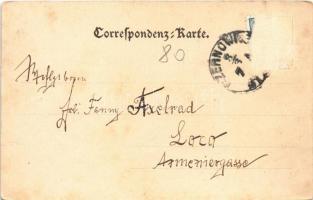 Correspondenz-Karte.
80
CZERNOWITZ
Frl. Fanny Axelrad
Loco
Armeniergasse